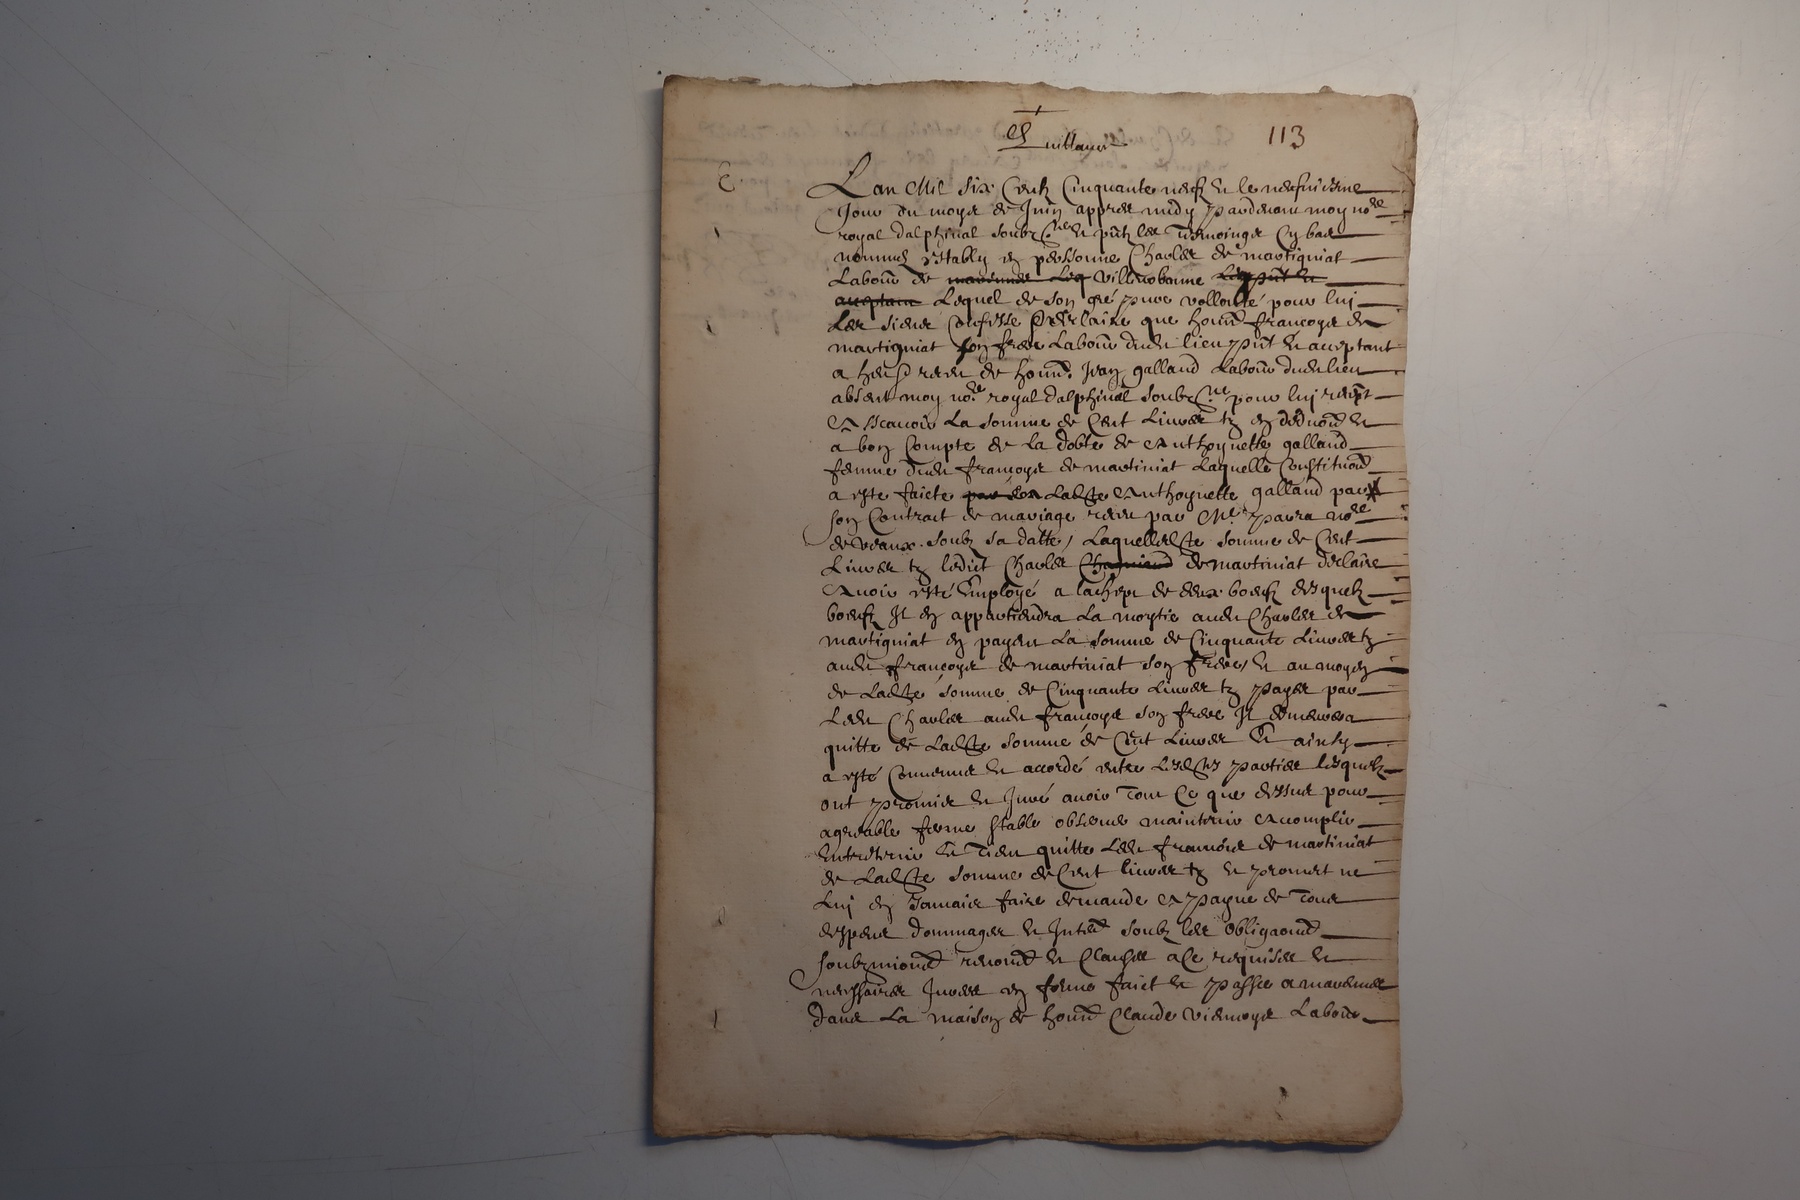 113
Lan Mil six Centz Cinquante neufz & le neufviesme
Jour du moys de Juin appres midy pardevant moy no.re
royal dalphinal soubz.ne & pntz les tesmoings Cy bas
nommes estably en personne Charles de martigniat
Labour de Villebonne
Lequel de son gré pure vollonté pour lui
Les siens Confesse declaire que honn. francoys de
martigniat son frere Labour dudit lieu pnt & acceptant
a heu receu de honn. Jean galland Labour dudit lieu
absent moy no.re royal dalphinal soubz.ne pour lui recept
A scavoir La somme de Cent Livres tz en &
a bon Compte de la dobte de Anthoynette galland
femme dudit francoys de martiniat Laquelle Constituon
a este faicte Ladte Anthoynette galland par
son Contract de mariage receu par Me parra no.re
de soubz sa datte, Laquelledte somme de Cent
Livres tz ledict Charles de martiniat declaire
Avoir esté Employé a lachept de deux boeufz desquelz
boeufz Il en appartiendra La moytie audit Charles de
martigniat en payant La somme de Cinquante Livres tz
audit francoys de martiniat son frere, & au moyen
de Ladte somme de Cinquante Livres tz payes par
Ledit Charles audit francoys son frere Il demeurera
quitte de Ladte somme de Cent Livres Et ainsy
a esté Convenu & accordé entre Lesdtes parties lesquelz
ont promis & Juré avoir tout Ce que dessus pour
agreable ferme stable observer maintenir Accomplir
Entretenir Et tient quitte Ledit francois de martiniat
de Ladte somme de Cent livres tz & promet ne
Lui en Jamais faire demande A payne de tous
despens dommages & Interestz soubz les obliga.ons
soubzmi.ons renon.ons & Clauses a Ce requises &
necessaires Jurees en forme faict & passé a
dans La maison de honn. Claude Labour